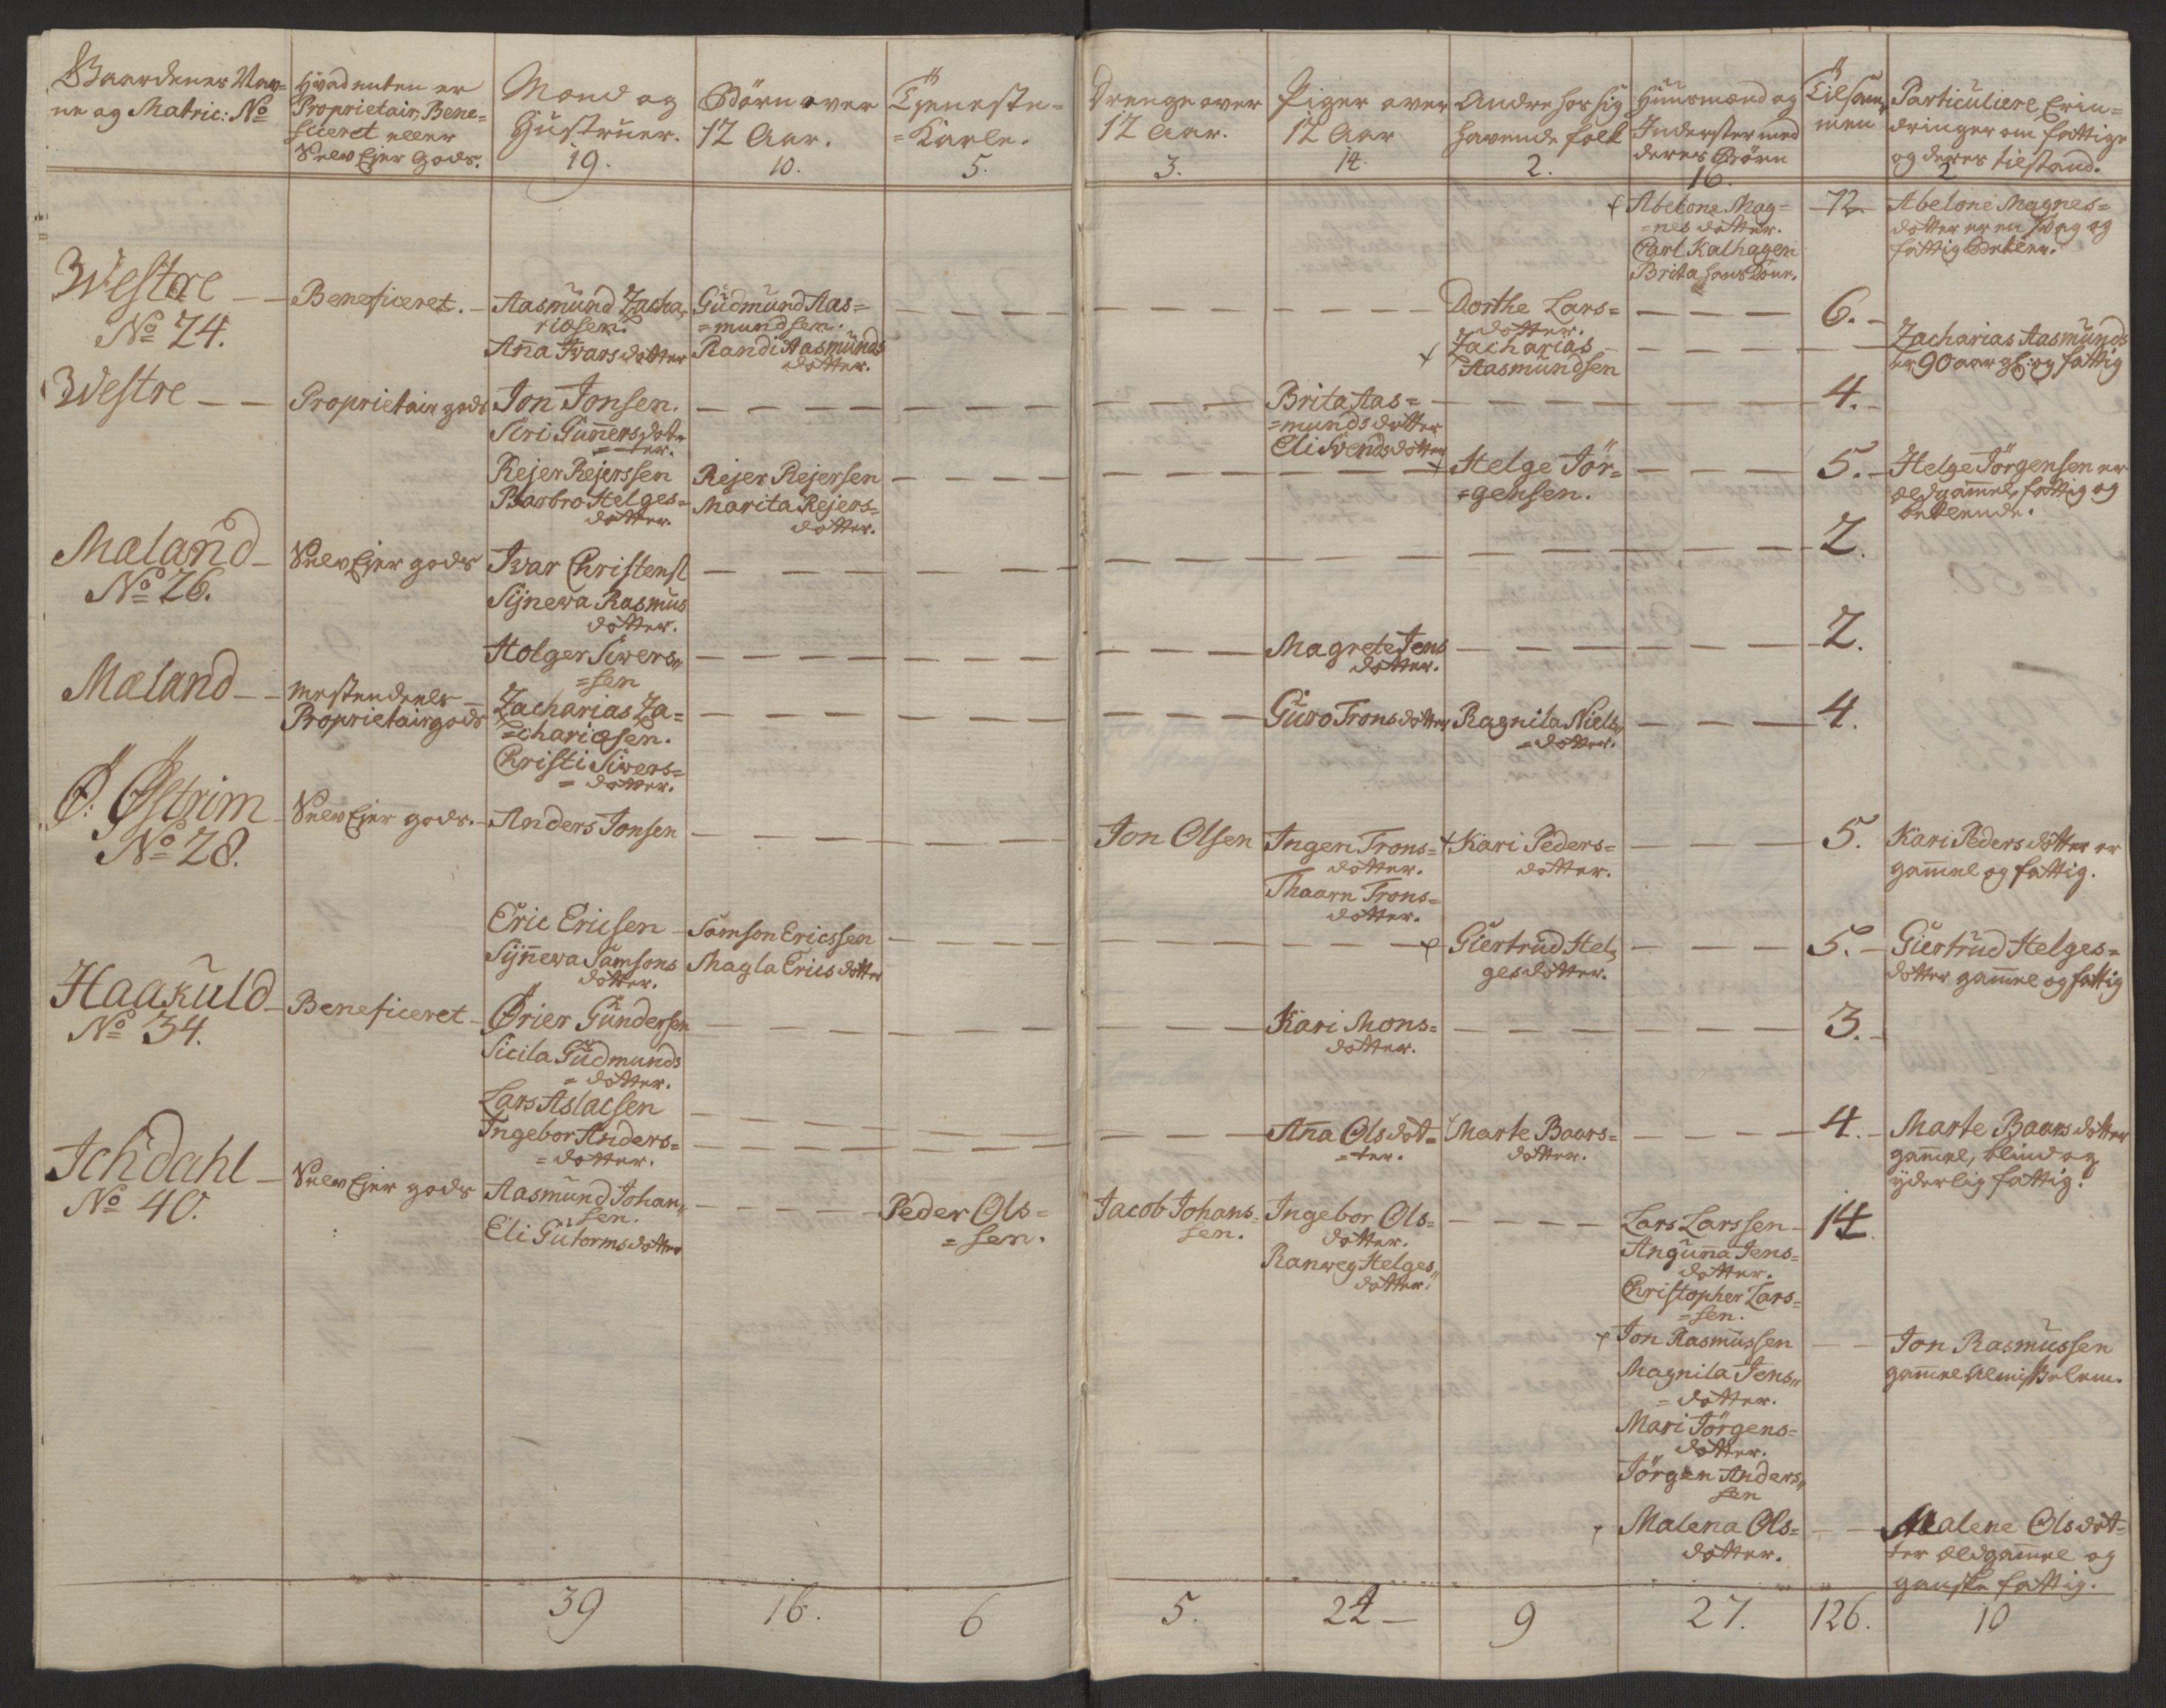 Gaardenes Nav=
ne og Matric: No
Hvad enten er
Proprietair, Bene=
ficeret eller
Selv Ejer Gods.
Mænd og
Hustruer.
19.
Börn over
12 Aar.
10.
Tjeneste=
=Karle.
5.
Drenge over
12 Aar.
3.
Piger over
12 Aar
14.
Andre hos sig
havende folk
2.
Huusmænd og
Inderster med
deres Börn
16.
Tilsam,
men
Particuliere Erin=
dringer om fattige
og deres tilstand.
2
Abelone Mag=
=nes dotter.
Carl Kalhagen
Brita hans Kone.
72
Abelone Magnes=
dotter er en svag og
fattig Betler.
Westre
No 24.
Beneficeret.
Aasmund Zacha,
riæsen.
Anna Ivarsdotter
Gudmund Aas=
=mundsen.
Randi Aasmunds
dotter.
Dorthe Lars=
dotter.
Zacharias
Aasmundsen
6.
Zacharias Aasmunds
er 90 aar gl: og fattig
Westre
Proprietair gods
Jon Jonsen.
Siri Gunnersdot=
=ter.
Brita Aas=
=munds dotter
Eli Svends dotter
4.
Rejer Rejerssen
Barbro Helges=
dotter.
Rejer Rejersen
Marita Rejers=
dotter.
Helge Jör=
=gensen.
5.
Helge Jörgensen er
ældgammel, fattig og
betlende.
Mæland
No 26.
Selv Ejer gods
Ivar Christens
Sijnewa Rasmus
dotter.
2.
Holger Siwers,,
=sen
Magrete Jens
dotter.
2.
Mæland
mestendeels
Proprietairgods
Zacharias Za=
=chariæsen.
Christi Siwers=
=dotter.
Guro Tronsdotter
Ragnila Niels,,
=dotter.
4.
Ø: Østrim
No 28.
Selv Ejer gods.
Anders Jonsen
Jon Olsen
Ingeri Trons=
dotter.
Thaarn Trons=
dotter.
Kari Peders=
dotter.
5.
Kari Peders dotter er
gammel og fattig.
Eric Ericsen
Sijnnewa Samsons
dotter.
Samson Ericssen
Magla Erics dotter
Giertrud Hel,
gesdotter.
5.
Giertrud Helges=
dotter gammel og fattig
Haakuld
No 34.
Beneficeret
Ørier Gundersen
Sicila Gudmunds
=dotter.
Kari Mons=
dotter.
3.
Lars Aslacsen
Ingebor Anders=
=dotter.
Anna Olsdot=
=ter.
Marte Baars=
dotter.
4.
Marte Baars dotter
gammel, blind og
yderlig fattig.
Ichdahl
No 40.
Selv Ejer gods
Aasmund Johan,,
sen.
Eli Gutormsdotter
Peder Ols=
=sen.
Jacob Johans=
sen.
Ingebor Ols=
dotter.
Ranweg Helges,,
dotter.
Lars Larssen
Angunna Jens=
dotter.
Christopher Lars=
=sen.
14.
Jon Rasmussen
Magnila Jens,,
=dotter.
Mari Jörgens=
dotter.
Jörgen Anders,,
sen
Jon Rasmussen
gammel Almisselem.
Malena Ols=
dotter.
Malene Olsdot=
ter ældgammel og
ganske fattig.
39
16.
6
5.
24
9
27.
126.
10